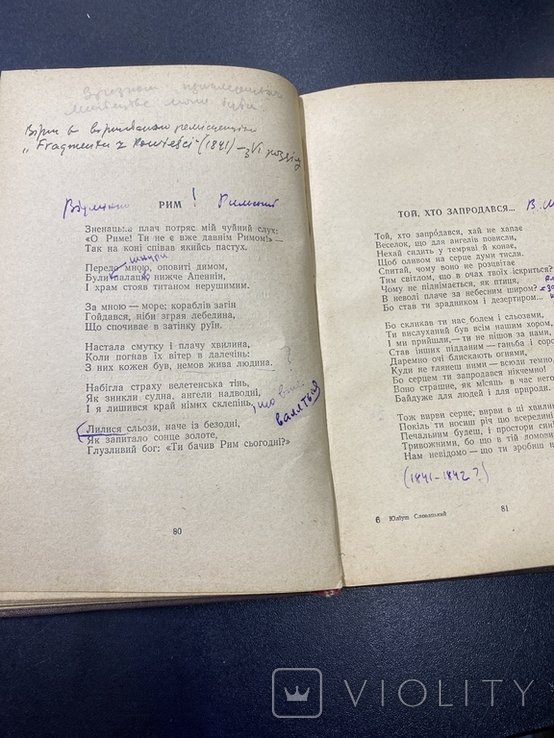 "Fragmenta z Powieści" (1841) – з VI
РИМ !
Зненацька плач потряс мій чуйний слух:
«О Риме! Ти не є вже давнім Римом!» —
Так на коні співав якийсь пастух.
Передо мною, оповиті димом,
Були палаццо нижче Апеннін,
І храм стояв титаном нерушимим.
За мною — море; кораблів загін
Гойдався, ніби зграя лебедина,
Що спочиває в затінку руїн.
Настала смутку і плачу хвилина,
Коли погнав їх вітер в далечінь;
З них кожен був, немов жива людина. ?
Набігла страху велетенська тінь,
Як зникли судна, ангели надводні,
І я лишився край німих склепінь,
Лилися сльози, наче із безодні,
Як запитало сонце золоте,
Глузливий бог: «Ти бачив Рим сьогодні?»
80
ТОЙ, ХТО ЗАПРОДАВСЯ...
Той, хто запродався, хай не хапає
Веселок, що для ангелів повисли,
Нехай сидить у темряві й копає,
Щоб оливом на серце думи тисли.
Спитай, чому воно не розквітає
Тим світлом, що в очах твоїх іскриться?
Чому не піднімається, як птиця,
В неволі плаче за небесним широм?
Бо став ти зрадником і дезертиром...
Бо скликав ти нас болем і сльозами,
Ти вислуханий був всім нашим хором,
І ми прийшли, — ти не пішов за нами,
Став інших підданим — ганьба і сором
Даремно очі блискають огнями,
Куди не глянеш ними — вс
Бо серцем ти запродався нікчемно!
Воно страшне, як місяць в час негоди
Байдуже для людей і для природи.
Тож вирви серце, вирви в ці хвилини
Покіль ти носиш річ цю всередині
Печальним будеш, і простори сині
Тривожними, бо що в тій домовині
Нам невідомо — що ти зробиш н
(1841–1842?)
6 Юліуш Словацький
81
VIOLITY